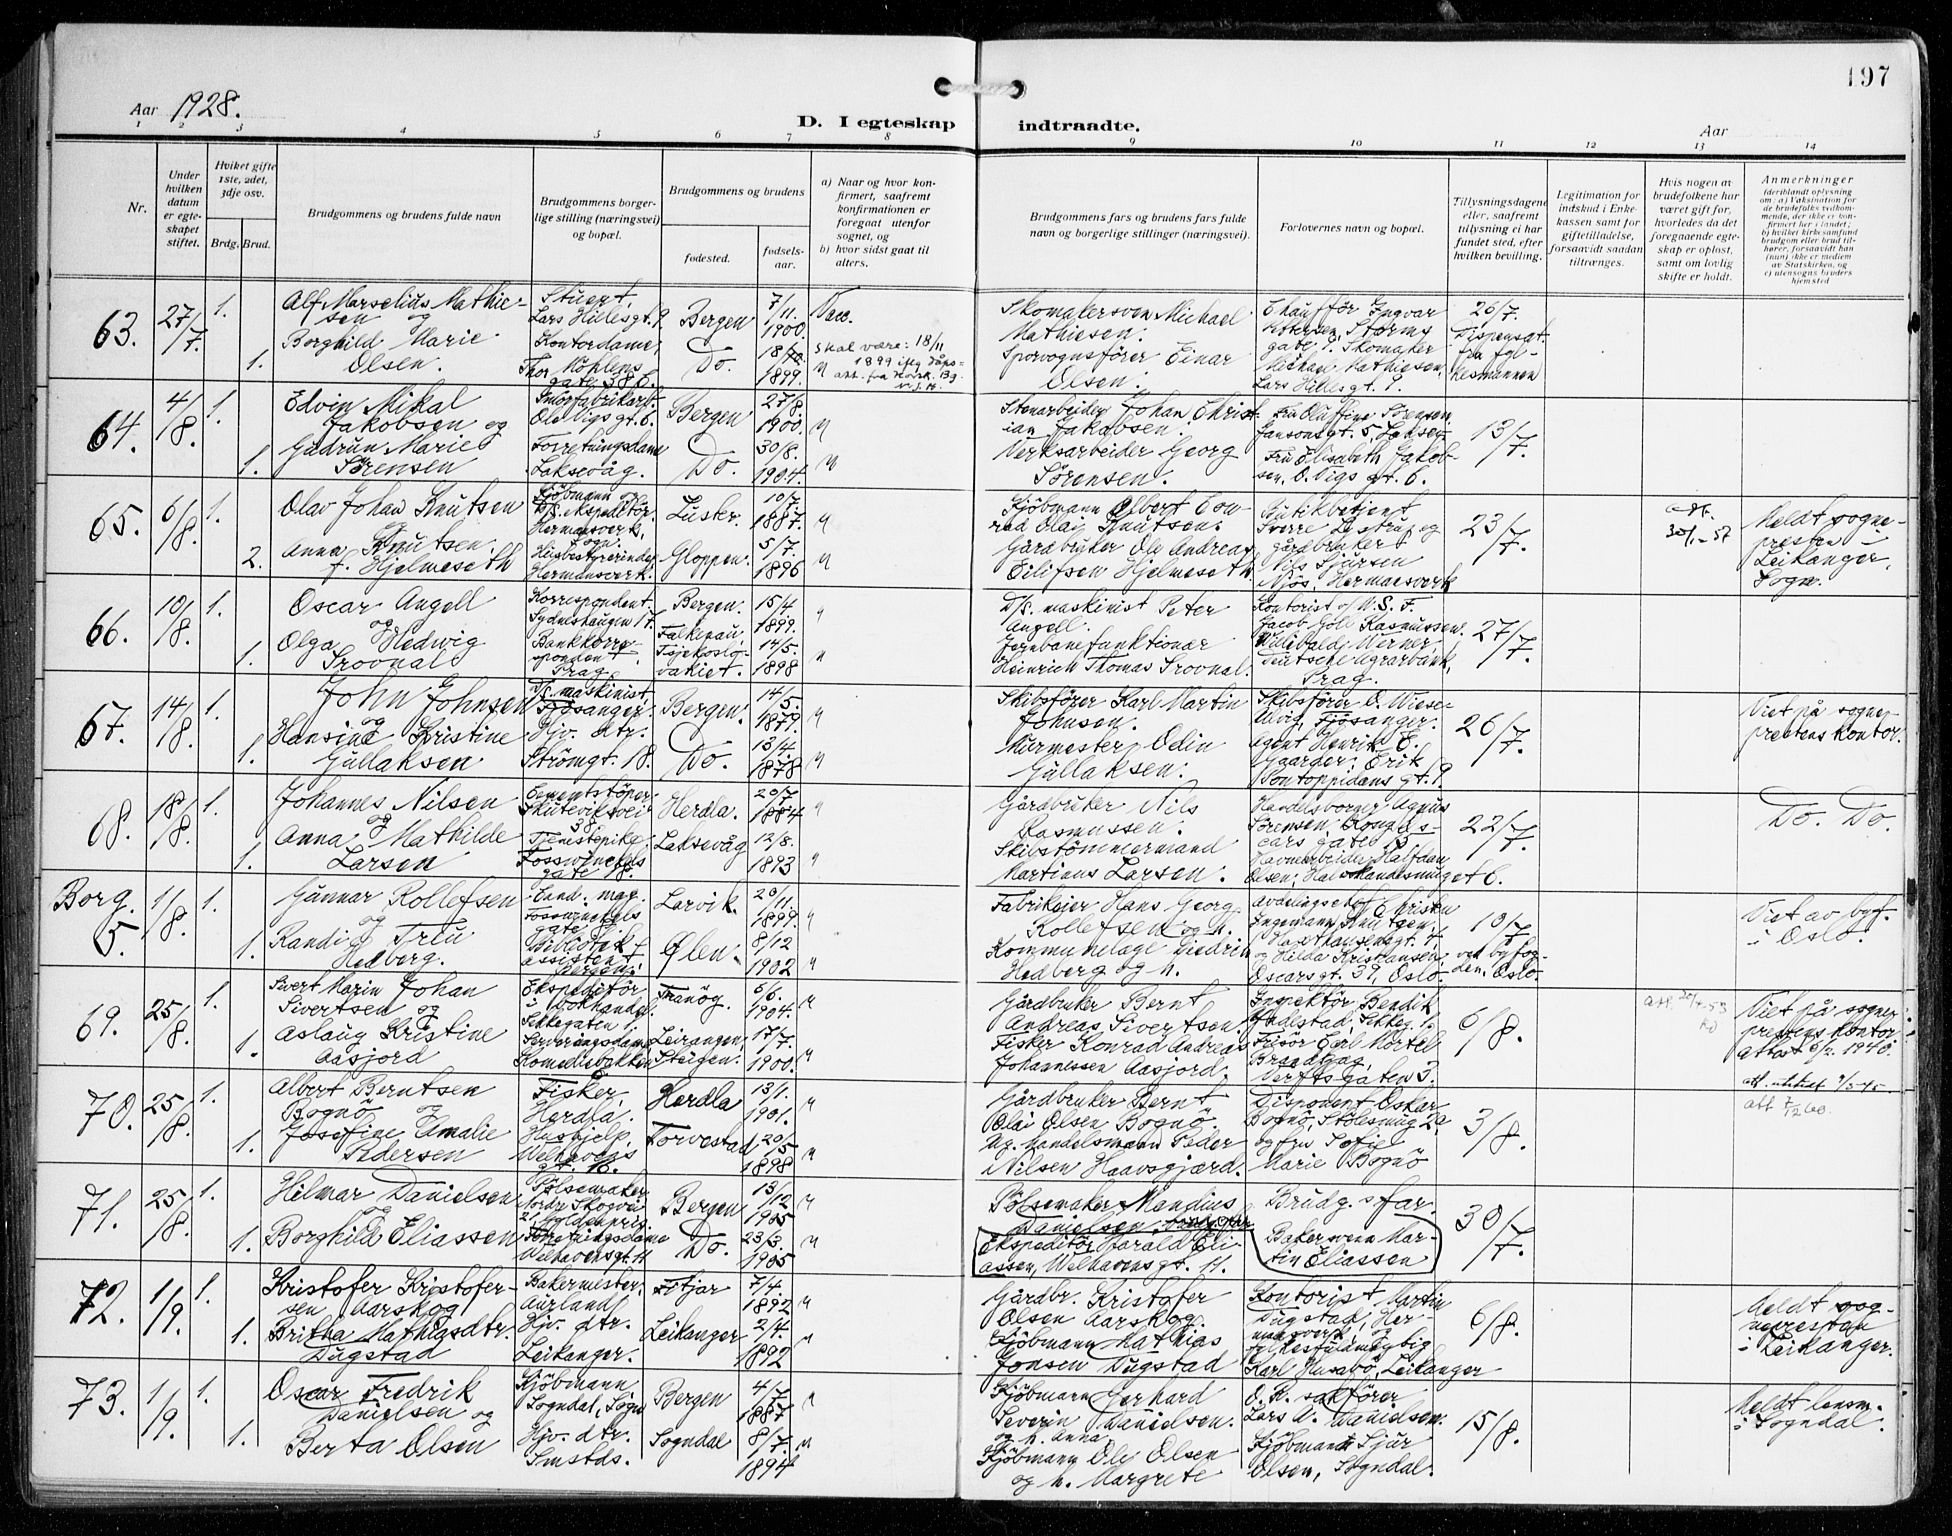 197
Aar 1928.
D. I egteskap indtraadte.
Aar
1 2 3 4 5 6 7 8 9 10 11 12 13 14
Nr.
Under hvilken datum er egteskapet stiftet.
Hvilket gifte 1ste, 2det, 3dje osv.
Brdg. Brud.
Brudgommens og brudens fulde navn
Brudgommens borgerlige stilling (næringsvei) og bopæl.
Brudgommens og brudens
fødested.
fødselsaar.
a) Naar og hvor konfirmert, saafremt konfirmationen er foregaat utenfor sognet, og
b) hvor sidst gaat til alters.
Brudgommens fars og brudens fars fulde navn og borgerlige stillinger (næringsvei).
Forlovernes navn og bopæl.
Tillysningsdagene eller, saafremt tillysning ei har fundet sted, efter hvilken bevilling.
Legitimation for indskud i Enkekassen samt for giftetilladelse, forsaavidt saadan tiltrænges.
Hvis nogen av brudefolkene har været gift før, hvorledes da det foregaaende egteskap er opløst, samt om lovlig skifte er holdt.
Anmerkninger (deriblandt oplysning om: a) Vaksination for de brudefolks vedkommende, der ikke er konfirmert her i landet; b) hvilket kirkesamfund brudgom eller brud tilhører, forsaavidt han (hun) ikke er medlem av Statskirken, og c) utensogns bruders hjemsted
63. 27/7. 1.
Alf Marselius Mathiesen og
Borghild Marie Olsen.
1.
Stuert, Lars Hillesgt. 9.
Kontordame, Thor Möhlens gate 38 b.
Bergen
Do.
7/11. 1900.
1899.
Vacc.
Skal være: 18/11 1899 iflg. dåpsatt. fra
Skomakersven Michael Mathiesen.
Sporvognsfører Einar Olsen.
Chauffør Ingvar
Storms gate 9. Skomaker
Michael Mathiesen, Lars Hillesgt. 9.
26/7.
Dispensat. fra fylkesmannen
64. 4/8. 1.
Edvin Mikal Jakobsen og
Gudrun Marie Sørensen
1.
Ole Vigs gt. 6.
Forretningsdame Laksevåg.
Bergen
Do.
27/8. 1900.
30/8. 1904.
Stenarbeider Johan Christian Jakobsen.
Verksarbeider Georg Sørensen.
Fru Oluffine Sørensen
Jansonsgt. 5,
Fru Elisabeth Jakobsen, O. Vigs gt. 6.
13/7.
65. 6/8. 1.
Olav Johan Knutsen
og
Anna Knutsen f. Hjelmeseth
2.
Kjöbmann og D/s. ekspeditör. Hermansverk, Sogn.
Husbestyrerinde, Hermansverk.
Luster.
Gloppen.
10/7. 1887.
5/7. 1896
Kjöbmann Albert Conrad Olai Knutsen.
Gårdbruker Ole Andreas Eilifsen Hjelmeseth.
Butikbetjent Sverre Lystrup og
gårdbruker Nils Sjursen Njøs, Hermansverk
23/7.
30/1-57
Meldt sognepresten i Leikanger, Sogn.
66. 10/8. 1.
Oscar Angell
og
Olga Hedwig Srovnal
1.
Korrespondent. Sydneshaugen 17.
Bankkorrespondent, Prag
Bergen.
Falkenau. Tsjekoslovakiet.
15/4. 1899.
14/5. 1898
D/s. maskinist Peter Angell.
Jernbanefunktionær Heinrich Thomas Srovnal.
Kontorist
Rasmussen.
Willibald Werner, Deutsche Agrarbank, Prag.
27/7.
67. 14/8. 1.
John Johnsen
og
Hansine Kristine Gullaksen
1.
D/s. maskinist. Fjösanger.
Hjv. dtr. Strömgt. 18.
Bergen.
Do.
14/5. 1879.
13/4. 1878
Skibsfører Karl Martin Johnsen.
Murmester Odin Gullaksen.
Skibsfører O. Wiese
Ulvig, Fjösanger.
Agent Henrik E. Gaarder, Erik Pontoppidans gt. 9.
26/7.
Viet på sogneprestens kontor.
68. 18/8. 1.
Johannes Nilsen
og
Anna Mathilde Larsen
1.
Cementstöper. Skuteviksvei 38.
Tjenestepike, Fosswinckels gate 18.
Herdla.
Laksevåg
20/7. 1884
12/8. 1893
Gårdbruker Nils Rasmussen.
Skibstömmermand Martians Larsen.
Handelsborger Agnus Sørensen,
gate 15
Havnearbeider Halfdan Olsen,
22/7.
Do. Do.
Borg. 5. 1/8. 1.
Gunnar Rollefsen
og
Randi Treu Hedberg.
1.
Cand. mag. Fosswinckels gate 8.
Bibliotekassistent Bergen.
Larvik.
Ølen.
20/11. 1899.
8/12 1902
Fabrikeier Hans Georg Rollefsen og h.
Kommunelæge Diedrich Hedberg og h.
Avdelingschef Christen Ingemann Knutzen,
og Hilda Kristiansen, Oscarsgt. 39, Oslo.
10/7
ved byfogden. Oslo
Viet av byf. i Oslo.
69. 25/8. 1.
Sivert Marin Johan Sivertsen og
Aslaug Kristine Aasjord
1.
Ekspeditör i bokhandel. Sekkegaten 1.
Serveringsdame Komediebakken
Tranöy.
Leirangen. Steigen.
6/6. 1904.
17/7. 1900.
Gårdbruker Bernt Andreas Sivertsen.
Fisker Konrad Andreas Johannessen Aasjord.
Inspektör Bendik Jadestad, Sekkeg. 1.
Frisör Carl Martel
Verftsgaten 3.
6/8.
Viet på sogneprestens kontor
Attest 6/2. 1940.
70. 25/8. 1.
Albert Berntsen Bognö og
Josefine Amalie Pedersen
1.
Fisker, Herdla.
Hushjelp, Welhavens gt. 16.
Herdla
Torvestad
13/1. 1901.
20/5 1898
Gårdbruker Bernt Olai Olsen Bognö.
Ug. handelsmann Peder Nilsen Haavsgjærd.
Disponent Oskar Bognö, Stölesmug 2a
og fru Sofie Marie Bognö
3/8.
att. utstedt
att 7/12 60.
71. 25/8. 1.
Hilmar Danielsen
og
Borghild Eliassen
1.
Pölsemaker Nordre Skogvei 2,
Forretningsdame Welhavensgt. 11
Bergen
Do.
13/12 1905
23/3. 1905
Pölsemaker Mandius Danielsen,
Ekspeditör Harald Eliassen, Welhavensgt. 11.
Brudg.s far.
Bakersvenn Martin Eliassen
30/7.
72. 1/9. 1.
Kristofer Kristofersen Aarskog
Britha Mathiasdtr. Dugstad
1.
Bakermester, Aurland
Hjv. dtr. Leikanger.
Fitjar
Leikanger
7/4. 1892
2/4. 1892
Gårdbr. Kristofer Olsen Aarskog.
Kjöbmann Mathias Jonsen Dugstad
Kontorist Martin Dugstad, Hermansverk, og
fylkesfuldmegtig Karl Husabö, Leikanger
6/8.
Meldt sognepresten i Leikanger.
73. 1/9. 1.
Oscar Fredrik Danielsen og
Berta Olsen
1.
Kjöbmann Sogndal, Sogn
Hjv. dtr. Smstds.
Bergen
Sogndal
4/7 1887
8/7. 1894
Kjöbmann Gerhard Severin Danielsen.
og h. Anna.
Kjöbmann Ole Olsen og h. Margrete
O. R. sakförer Lars A. Danielsen.
Kjöbmann Sjur Olsen, Sogndal.
15/8.
Meldt lensm. i Sogndal.